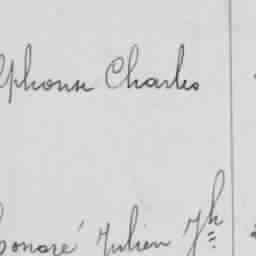 lphonse Charles
onoré Julien Jh